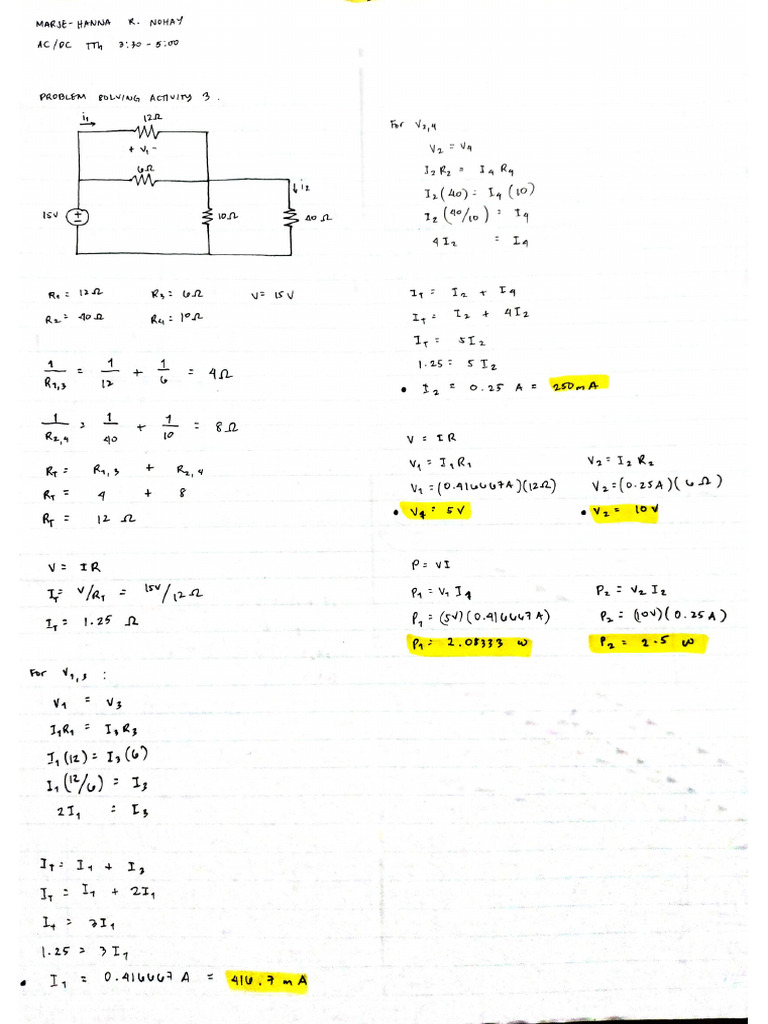 MARJE-HANNA R. NOHAY
AC/DC TTh 3:30 - 5:00
PROBLEM SOLVING ACTIVITY 3.
i₁
12Ω
+ V₁ -
6Ω
i₂
15V
10Ω
40Ω
R₁ = 12Ω R₃ = 6Ω V = 15V
R₂ = 40Ω R₄ = 10Ω
1/R₁,₃ = 1/12 + 1/6 = 4Ω
1/R₂,₄ = 1/40 + 1/10 = 8Ω
R_T = R₁,₃ + R₂,₄
R_T = 4 + 8
R_T = 12 Ω
V = IR
I_T = V/R_T = 15V/12Ω
I_T = 1.25 Ω
For V₁,₃ :
V₁ = V₃
I₁R₁ = I₃R₃
I₁(12) = I₃(6)
I₁(12/6) = I₃
2I₁ = I₃
I_T = I₁ + I₃
I_T = I₁ + 2I₁
I_T = 3I₁
1.25 = 3I₁
• I₁ = 0.416667 A = 416.7 mA
For V₂,₄
V₂ = V₄
I₂R₂ = I₄R₄
I₂(40) = I₄(10)
I₂(40/10) = I₄
4I₂ = I₄
I_T = I₂ + I₄
I_T = I₂ + 4I₂
I_T = 5I₂
1.25 = 5I₂
• I₂ = 0.25 A = 250mA
V = IR
V₁ = I₁R₁ V₂ = I₂R₂
V₁ = (0.416667A)(12Ω) V₂ = (0.25A)(6Ω)
• V₁ = 5V • V₂ = 10V
P = VI
P₁ = V₁I₁ P₂ = V₂I₂
P₁ = (5V)(0.416667A) P₂ = (10V)(0.25A)
P₁ = 2.08333 W P₂ = 2.5 W